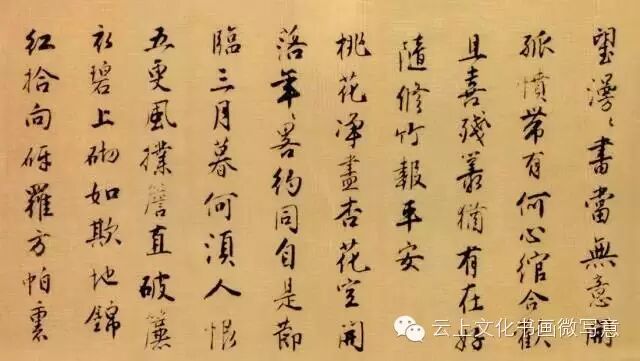 望漫〻書當無意開
孤憤帶有何心綰合歡
且喜殘叢猶有在好
隨修竹報平安
桃花淨盡杏花空開
落年〻畧約同自是節
臨三月暮何須人恨
五更風撲簷直破簾
衣碧上砌如欺地錦
紅拾向砑羅方帕裹
云上文化书画微写意